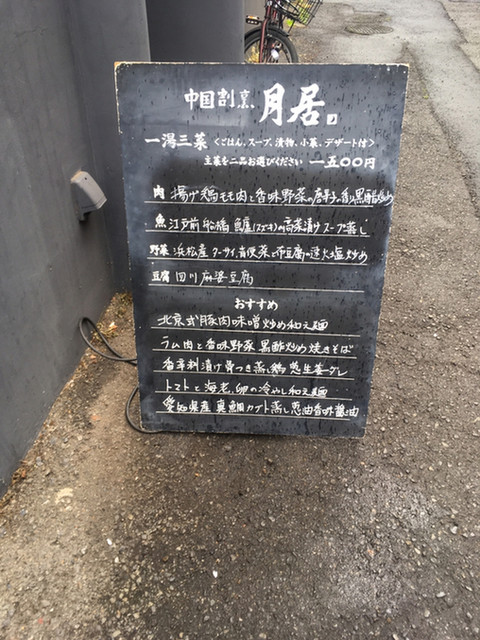 中国割烹 月居
一湯三菜 <ごはん、スープ、漬物、小菜、デザート付>
主菜を二品お選びください 一五〇〇円
肉 揚げ鶏モモ肉と香味野菜の唐辛子香り黒酢炒め
魚 江戸前船橋 魚鱸(スズキ)の高菜漬けスープ蒸し
野菜 浜松産 ターサイ、青梗菜と干豆腐の速火塩炒め
豆腐 四川麻婆豆腐
おすすめ
北京式豚肉味噌炒め和え麺
ラム肉と香味野菜 黒酢炒め焼きそば
香辛料漬け骨つき蒸し鶏 葱生姜ダレ
トマトと海老、卵の冷やし和え麺
愛知県産 真鯛カブト蒸し 葱油香味醤油